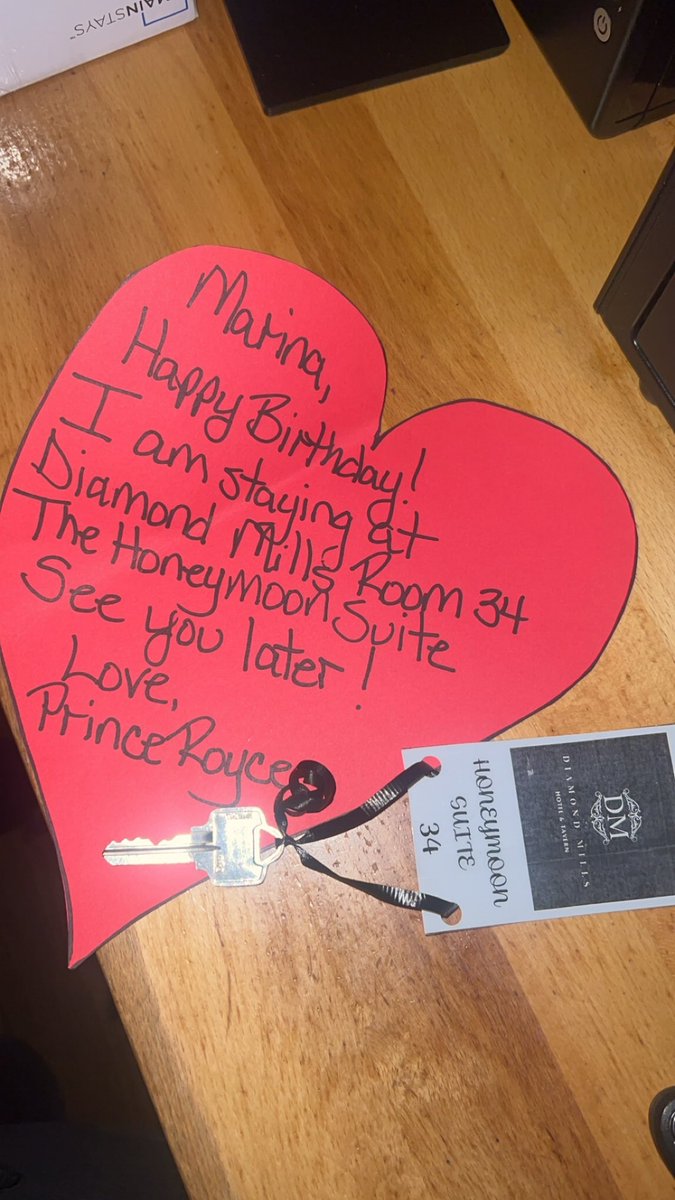 MAINSTAYS™
Marina,
Happy Birthday!
I am staying at
Diamond Mills Room 34
The Honeymoon Suite
See you later!
Love,
Prince Royce
HONEYMOON
SUITE
34
DIAMOND MILLS
HOTEL & TAVERN
DM